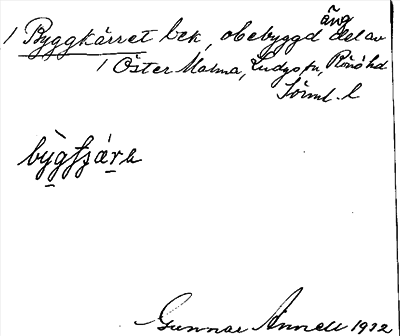 1 Byggkärret bek, obebyggd äng del av
1 Öster Malma, Ludgo sn, Rönö hd
Sörml. l
bỳgfjǽrе
Gunnar Annell 1932